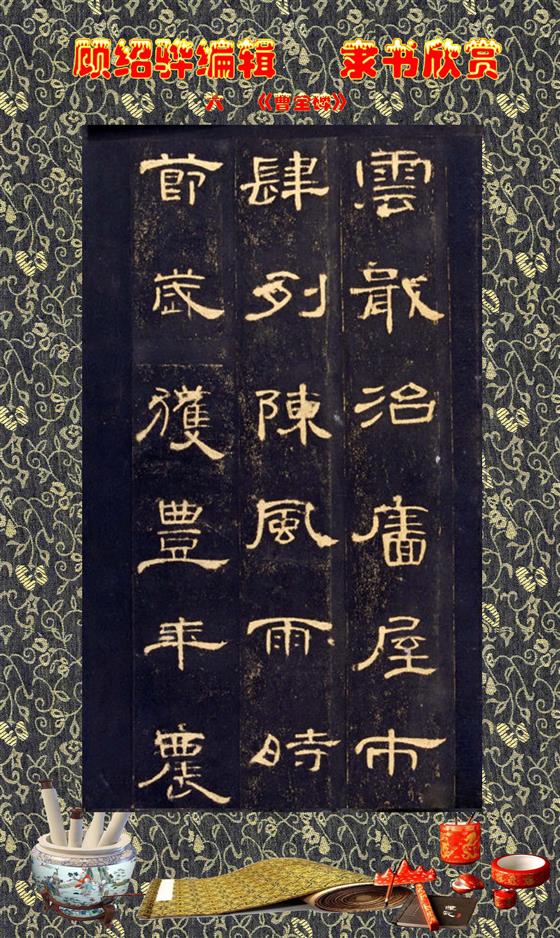 顾绍骅编辑 隶书欣赏
六 《曹全碑》
雲戢治廧屋市
肆列陳風雨時
節歲獲豐年農